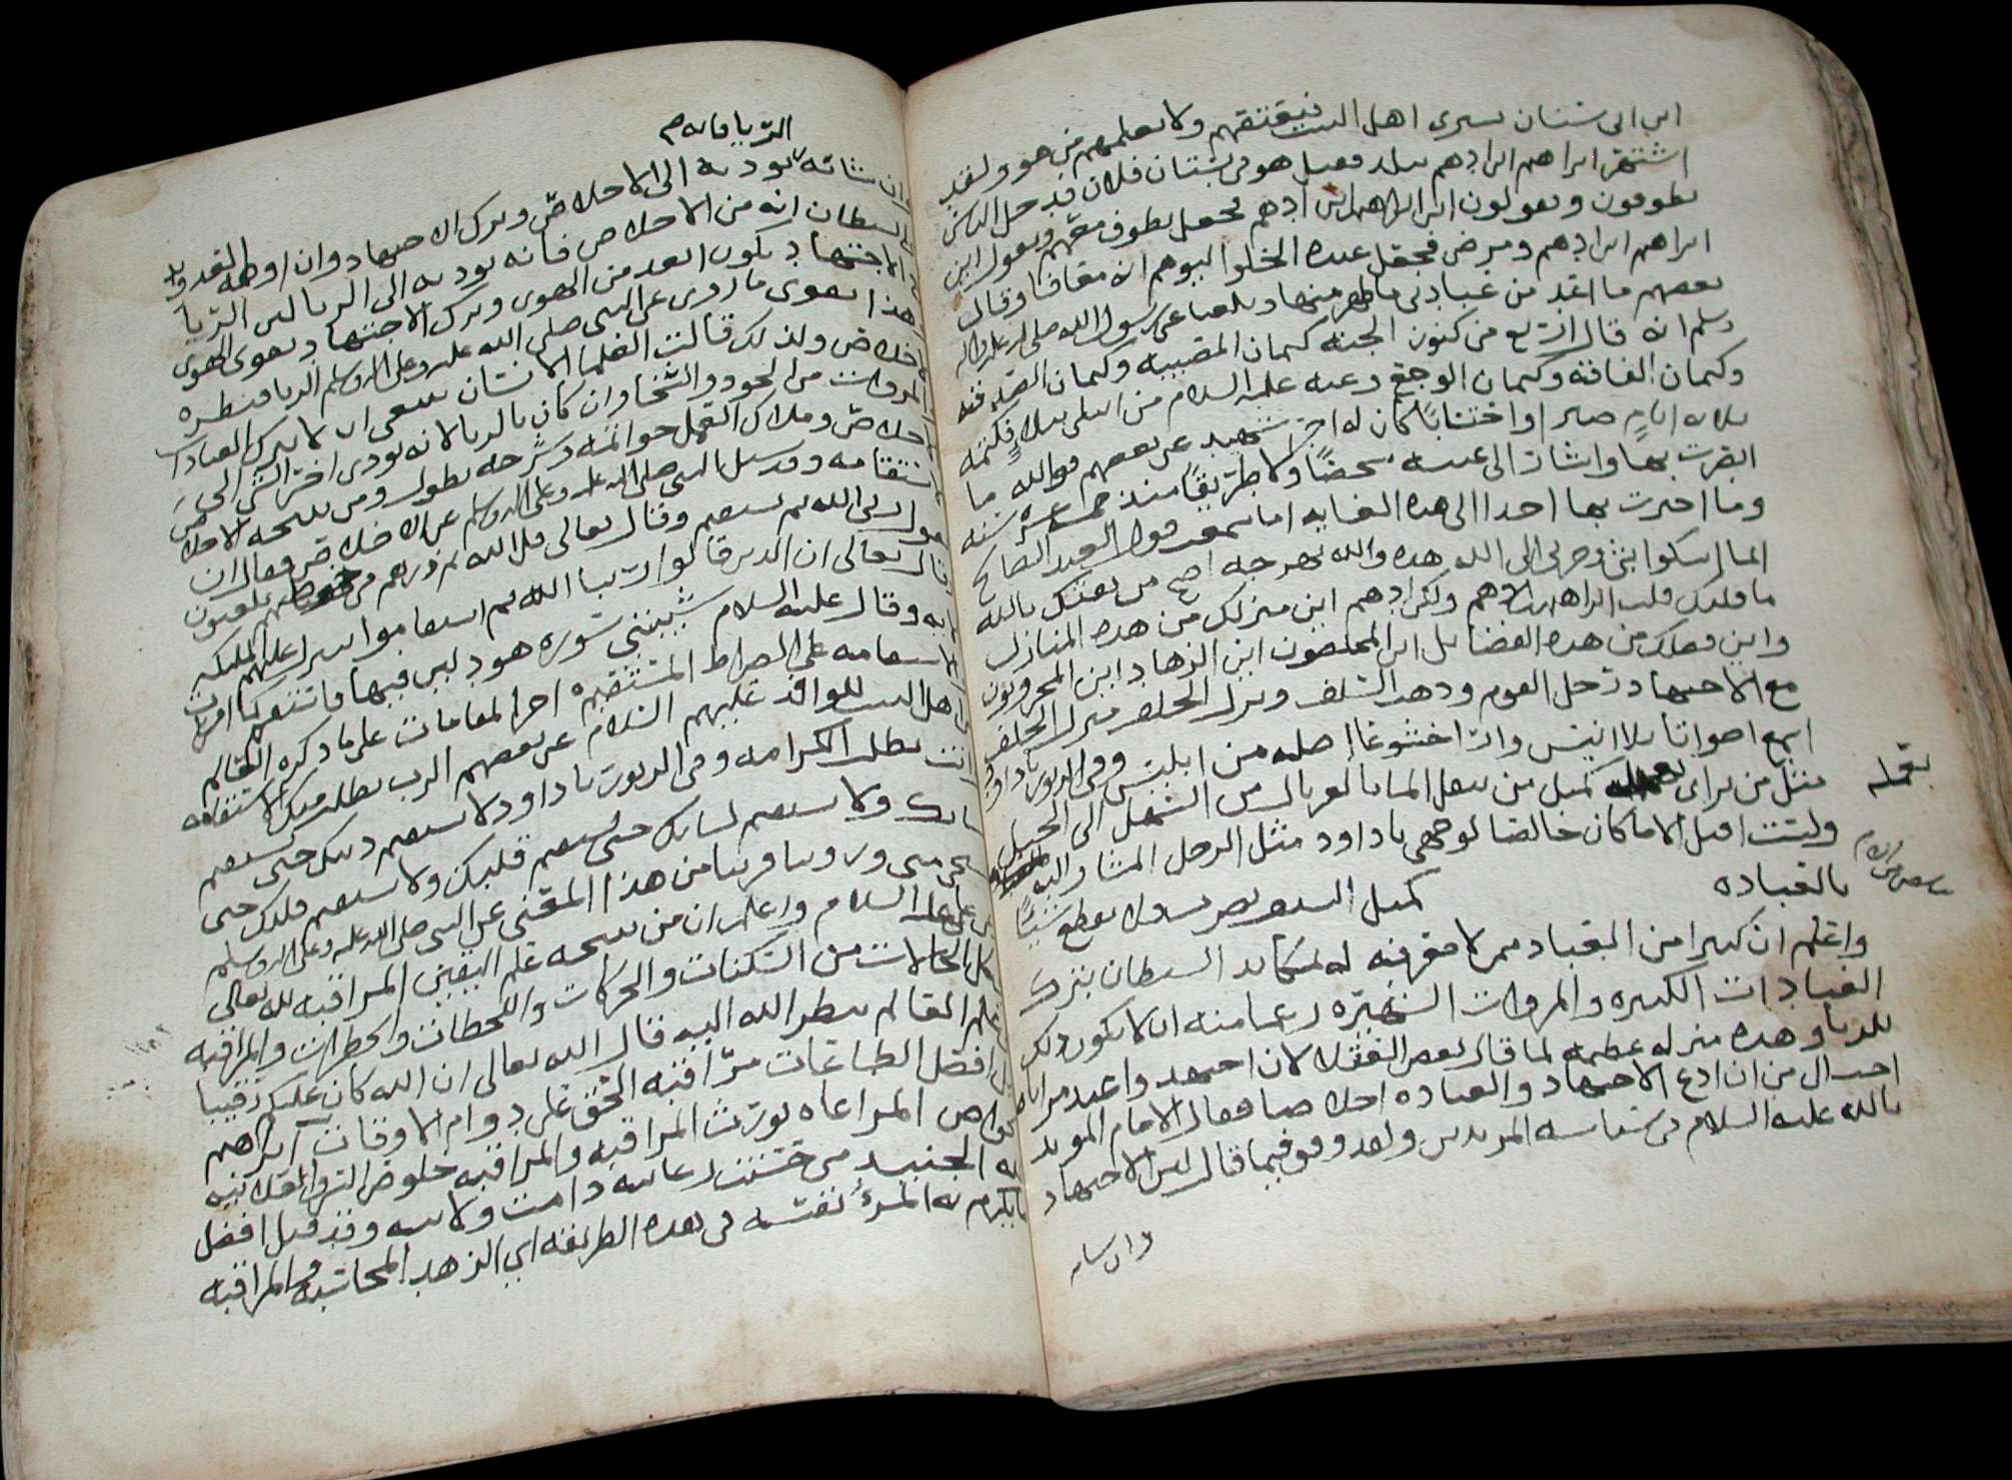 اهل البيت ولا يعلمهم من هو ولقد
ابراهيم ابن ادهم ببلد فقيل هو في بستان فلان قد دخل الناس
يطوفون ويقولون اين ابراهيم ابن ادهم فجعل يطوف معهم ويقول اين
ابراهيم ابن ادهم ومرض فجعل عنده
بعضهم ما اعد من عبادتي ما ظهر منها وبلغنا عن رسول الله صلى الله عليه واله
وسلم انه قال اربع من كنوز الجنه كتمان المصيبه وكتمان الصدقه
وكتمان الفاقه وكتمان الوجع وعنه عليه السلام من ابتلي ببلاء فكتمه
ثلاثه ايام صبرا واحتسابا كان له اجر شهيد عن بعضهم فوالله ما
ابصرت بها واشار الى عينه شخصا ولا طريقا منذ سنه
وما اخبرت بها احدا الى هذه الغايه اما سمعت قول العبد الصالح
انما اشكوا بثي وحزني الى الله هذه والله
ما قلبك قلب ابراهيم ابن ادهم ولكن اين منزلك من هذه المنازل
واين فعلك من هذه الفضائل اين المخلصون اين الزهاد اين المحزونون
مع الاجتهاد رحل القوم وذهب السلف
اسمع اصواتا بلا انيس وارا خشوعا اصله من ابليس وفي الزبور يا داود
مثل من يراى كمثل من ينقل الما بالغربال من السهل الى الجبل
بعمله
ولست اقبل الا ما كان خالصا لوجهي يا داود مثل الرجل المشار اليه
بالعباده
كمثل
واعلم ان كثيرا من العباد ممن لا معرفه له بمكايد الشيطان يترك
العبادات الكثيره والمروات الشهيره رعما منه ان لا يكون ذلك
للريا وهذه منزله عظيمه لما قال بعض الفضلا لان اجتهد واعبد مرايا
احب الي من ان ادع الاجتهاد والعباده اخلاصا فقال الامام المويد
بالله عليه السلام في سياسه المريدين ولقد وفق فيما قال لان الاجتهاد
وان شابه
الريا فانه
وان شابه يوديه الى الاخلاص وترك الاجتهاد وان اوهمه العدو
الشيطان انه من الاخلاص فانه يوديه الى الريا لان الريا
الاجتهاد يكون ابعد من الهوى وترك الاجتهاد يقوي الهوى
هذا يقوي ما روي عن النبي صلى الله عليه وعلى اله وسلم الريا قنطره
الاخلاص ولذلك قالت العلما الانسان ينبغي ان لا يترك العبادات
والمروات من الجود والسخا وان كان بالريا لانه يودي اخر الشي الى
الاخلاص وملاك العمل خواتمه
استقامه وقد سئل النبي صلى الله عليه وعلى اله وسلم عن الاخلاص فقال ان
تقول ربي الله ثم تستقيم وقال تعالى قل الله ثم ذرهم في خوضهم يلعبون
وقال تعالى ان الذين قالوا ربنا الله ثم استقاموا تتنزل عليهم الملائكه
الايه وقال عليه السلام شيبتني سوره هود
الاستقامه على الصراط المستقيم اخر المقامات على ما ذكره العالم
اهل البيت عليهم السلام عن بعضهم الرب يطلب منك الاستقامه
وانت تطلب الكرامه وفي الزبور يا داود لا يستقيم دينك حتى يستقيم
لسانك ولا يستقيم لسانك حتى يستقيم قلبك ولا يستقيم قلبك حتى
تستحي مني وروينا قريبا من هذا المعنى عن النبي صلى الله عليه وعلى اله وسلم
عن علي عليه السلام واعلم ان من نتيجه علم اليقين المراقبه لله تعالى
في كل الحالات من السكنات والحركات واللحظات والخطرات والمراقبه
علم العالم بنظر الله اليه قال الله تعالى ان الله كان عليكم رقيبا
افضل الطاعات مراقبه الحق على دوام الاوقات ابراهيم
الخواص المراعاه تورث المراقبه والمراقبه خلوص السر والعلانيه
الجنيد من حسنت رعايته دامت ولايته وقد قيل افضل
ما يلزم به المرء نفسه في هذه الطريقه اي الزهد المحاسبه والمراقبه